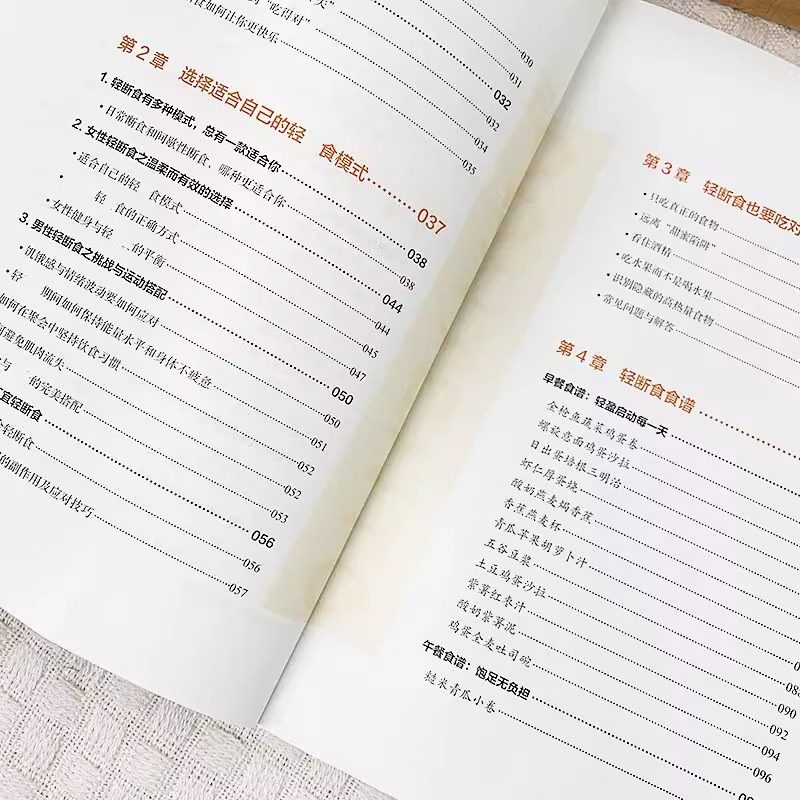 天” 032
的“吃得对” 034
食如何让你更快乐 035
030
031
032
第2章 选择适合自己的轻 食模式 037
1. 轻断食有多种模式，总有一款适合你 038
• 日常断食和间歇性断食，哪种更适合你 038
2. 女性轻断食之温柔而有效的选择 044
• 适合自己的轻 食模式 044
• 轻 食的正确方式 045
• 女性健身与轻 的平衡 047
3. 男性轻断食之挑战与运动搭配 050
• 饥饿感与情绪波动要如何应对 050
• 轻 期间如何保持能量水平和身体不疲惫 051
如何在聚会中坚持饮食习惯 052
何避免肌肉流失 052
与 的完美搭配 053
宜轻断食 056
轻断食 056
的副作用及应对技巧 057
第3章 轻断食也要吃对
• 只吃真正的食物
• 远离“甜蜜陷阱”
• 看住酒精
• 吃水果而不是喝水果
• 识别隐藏的高热量食物
• 常见问题与解答
第4章 轻断食食谱
早餐食谱：轻盈启动每一天
金枪鱼蔬菜鸡蛋卷
螺旋意面鸡蛋沙拉
日出蛋培根三明治
虾仁厚蛋烧
酸奶燕麦焗香蕉
香蕉燕麦杯
青瓜苹果胡萝卜汁
五谷豆浆
土豆鸡蛋沙拉 088
紫薯红枣汁 090
酸奶紫薯泥 092
鸡蛋全麦吐司碗 094
午餐食谱：饱足无负担 096
糙米青瓜小卷